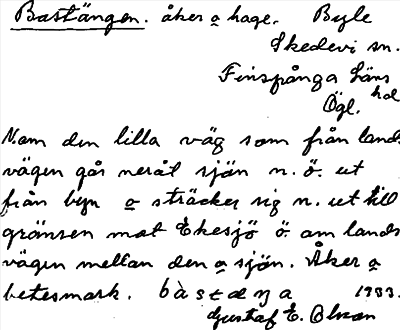 Bastängen. åker o hage. Byle
Skedevi sn.
Finspånga läns hd
Ögl.
N.om den lilla väg som från lands
vägen går neråt sjön n. ö. ut
från byn o sträcker sig n. ut till
gränsen mot Ekesjö ö. om lands
vägen mellan den o sjön. Åker o
betesmark. bàstæŋa 1933.
Gustaf E. Olson